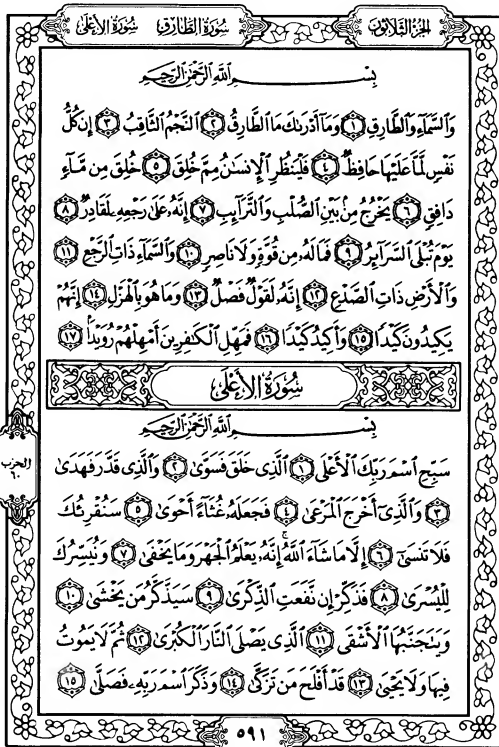 سُورَةُ الطَّارِقِ سُورَةُ الأَعْلَى الجُزْءُ الثَّلَاثُونَ
بِسْمِ اللَّهِ الرَّحْمَٰنِ الرَّحِيمِ
وَالسَّمَاءِ وَالطَّارِقِ ١ وَمَا أَدْرَىٰكَ مَا الطَّارِقُ ٢ النَّجْمُ الثَّاقِبُ ٣ إِن كُلُّ
نَفْسٍ لَّمَّا عَلَيْهَا حَافِظٌ ٤ فَلْيَنظُرِ الْإِنسَٰنُ مِمَّ خُلِقَ ٥ خُلِقَ مِن مَّاءٍ
دَافِقٍ ٦ يَخْرُجُ مِنۢ بَيْنِ الصُّلْبِ وَالتَّرَائِبِ ٧ إِنَّهُۥ عَلَىٰ رَجْعِهِۦ لَقَادِرٌ ٨
يَوْمَ تُبْلَى السَّرَائِرُ ٩ فَمَا لَهُۥ مِن قُوَّةٍ وَلَا نَاصِرٍ ١٠ وَالسَّمَاءِ ذَاتِ الرَّجْعِ ١١
وَالْأَرْضِ ذَاتِ الصَّدْعِ ١٢ إِنَّهُۥ لَقَوْلٌ فَصْلٌ ١٣ وَمَا هُوَ بِالْهَزْلِ ١٤ إِنَّهُمْ
يَكِيدُونَ كَيْدًا ١٥ وَأَكِيدُ كَيْدًا ١٦ فَمَهِّلِ الْكَٰفِرِينَ أَمْهِلْهُمْ رُوَيْدًۢا ١٧
سُورَةُ الأَعْلَى
بِسْمِ اللَّهِ الرَّحْمَٰنِ الرَّحِيمِ
سَبِّحِ اسْمَ رَبِّكَ الْأَعْلَى ١ الَّذِى خَلَقَ فَسَوَّىٰ ٢ وَالَّذِى قَدَّرَ فَهَدَىٰ
٣ وَالَّذِىٓ أَخْرَجَ الْمَرْعَىٰ ٤ فَجَعَلَهُۥ غُثَاءً أَحْوَىٰ ٥ سَنُقْرِئُكَ
فَلَا تَنسَىٰٓ ٦ إِلَّا مَا شَاءَ اللَّهُ ۚ إِنَّهُۥ يَعْلَمُ الْجَهْرَ وَمَا يَخْفَىٰ ٧ وَنُيَسِّرُكَ
لِلْيُسْرَىٰ ٨ فَذَكِّرْ إِن نَّفَعَتِ الذِّكْرَىٰ ٩ سَيَذَّكَّرُ مَن يَخْشَىٰ ١٠
وَيَتَجَنَّبُهَا الْأَشْقَى ١١ الَّذِى يَصْلَى النَّارَ الْكُبْرَىٰ ١٢ ثُمَّ لَا يَمُوتُ
فِيهَا وَلَا يَحْيَىٰ ١٣ قَدْ أَفْلَحَ مَن تَزَكَّىٰ ١٤ وَذَكَرَ اسْمَ رَبِّهِۦ فَصَلَّىٰ ١٥
الحزب
٦٠
٥٩١